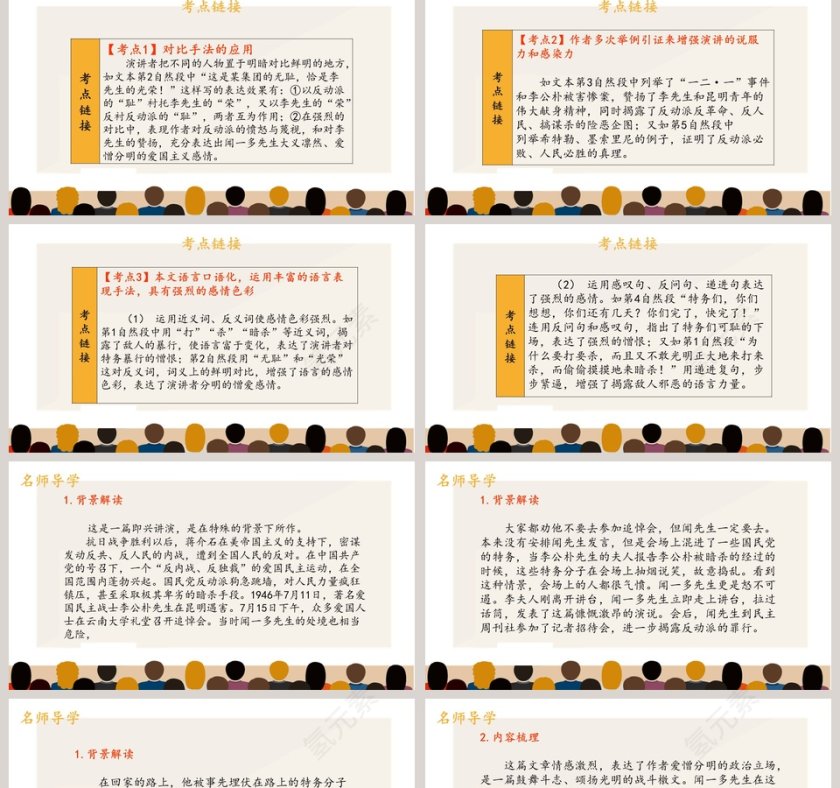 考点链接
考点链接
【考点1】对比手法的应用
演讲者把不同的人物置于明暗对比鲜明的地方,
如文本第2自然段中“这是某集团的无耻，恰是李
先生的光荣！”这样写的表达效果有：①以反动派
的“耻”衬托李先生的“荣”，又以李先生的“荣”
反衬反动派的“耻”，两者互为作用；②在强烈的
对比中，表现作者对反动派的愤怒与蔑视，和对李
先生的赞扬，充分表达出闻一多先生大义凛然、爱
憎分明的爱国主义感情。
考点链接
【考点2】作者多次举例引证来增强演讲的说服
力和感染力
如文本第3自然段中列举了“一二·一”事件
和李公朴被害惨案，赞扬了李先生和昆明青年的
伟大献身精神，同时揭露了反动派反革命、反人
民、搞谋杀的险恶企图；又如第5自然段中
列举希特勒、墨索里尼的例子，证明了反动派必
败、人民必胜的真理。
考点链接
考点链接
考点链接
【考点3】本文语言口语化，运用丰富的语言表
现手法，具有强烈的感情色彩
（1） 运用近义词、反义词使感情色彩强烈。如
第1自然段中用“打”“杀”“暗杀”等近义词，揭
露了敌人的暴行，使语言富于变化，表达了演讲者对
特务暴行的憎恨；第2自然段用“无耻”和“光荣”
这对反义词，词义上的鲜明对比，增强了语言的感情
色彩，表达了演讲者分明的憎爱感情。
考点链接
考点链接
（2） 运用感叹句、反问句、递进句表达
了强烈的感情。如第4自然段“特务们，你们
想想，你们还有几天？你们完了，快完了！”
连用反问句和感叹句，指出了特务们可耻的下
场，表达了强烈的憎恨；又如第1自然段“为
什么要打要杀，而且又不敢光明正大地来打来
杀，而偷偷摸摸地来暗杀！”用递进复句，步
步紧逼，增强了揭露敌人邪恶的语言力量。
考点链接
名师导学
1.背景解读
这是一篇即兴讲演，是在特殊的背景下所作。
抗日战争胜利以后，蒋介石在美帝国主义的支持下，密谋
发动反共、反人民的内战，遭到全国人民的反对。在中国共产
党的号召下，一个“反内战、反独裁”的爱国民主运动，在全
国范围内蓬勃兴起。国民党反动派狗急跳墙，对人民力量疯狂
镇压，甚至采取极其卑劣的暗杀手段。1946年7月11日，著名爱
国民主战士李公朴先生在昆明遇害。7月15日下午，众多爱国人
士在云南大学礼堂召开追悼会。当时闻一多先生的处境也相当
危险，
名师导学
1.背景解读
大家都劝他不要去参加追悼会，但闻先生一定要去。
本来没有安排闻先生发言，但是会场上混进了一些国民党
的特务，当李公朴先生的夫人报告李公朴被暗杀的经过的
时候，这些特务分子在会场上抽烟说笑，故意捣乱。看到
这种情景，会场上的人都很气愤。闻一多先生更是怒不可
遏。李夫人刚离开讲台，闻一多先生立即走上讲台，拉过
话筒，发表了这篇慷慨激昂的演说。会后，闻先生到民主
周刊社参加了记者招待会，进一步揭露反动派的罪行。
名师导学
1.背景解读
在回家的路上，他被事先埋伏在路上的特务分子
名师导学
2.内容梳理
这篇文章情感激烈，表达了作者爱憎分明的政治立场，
是一篇鼓舞斗志、颂扬光明的战斗檄文。闻一多先生在这
氢元素
氢元素